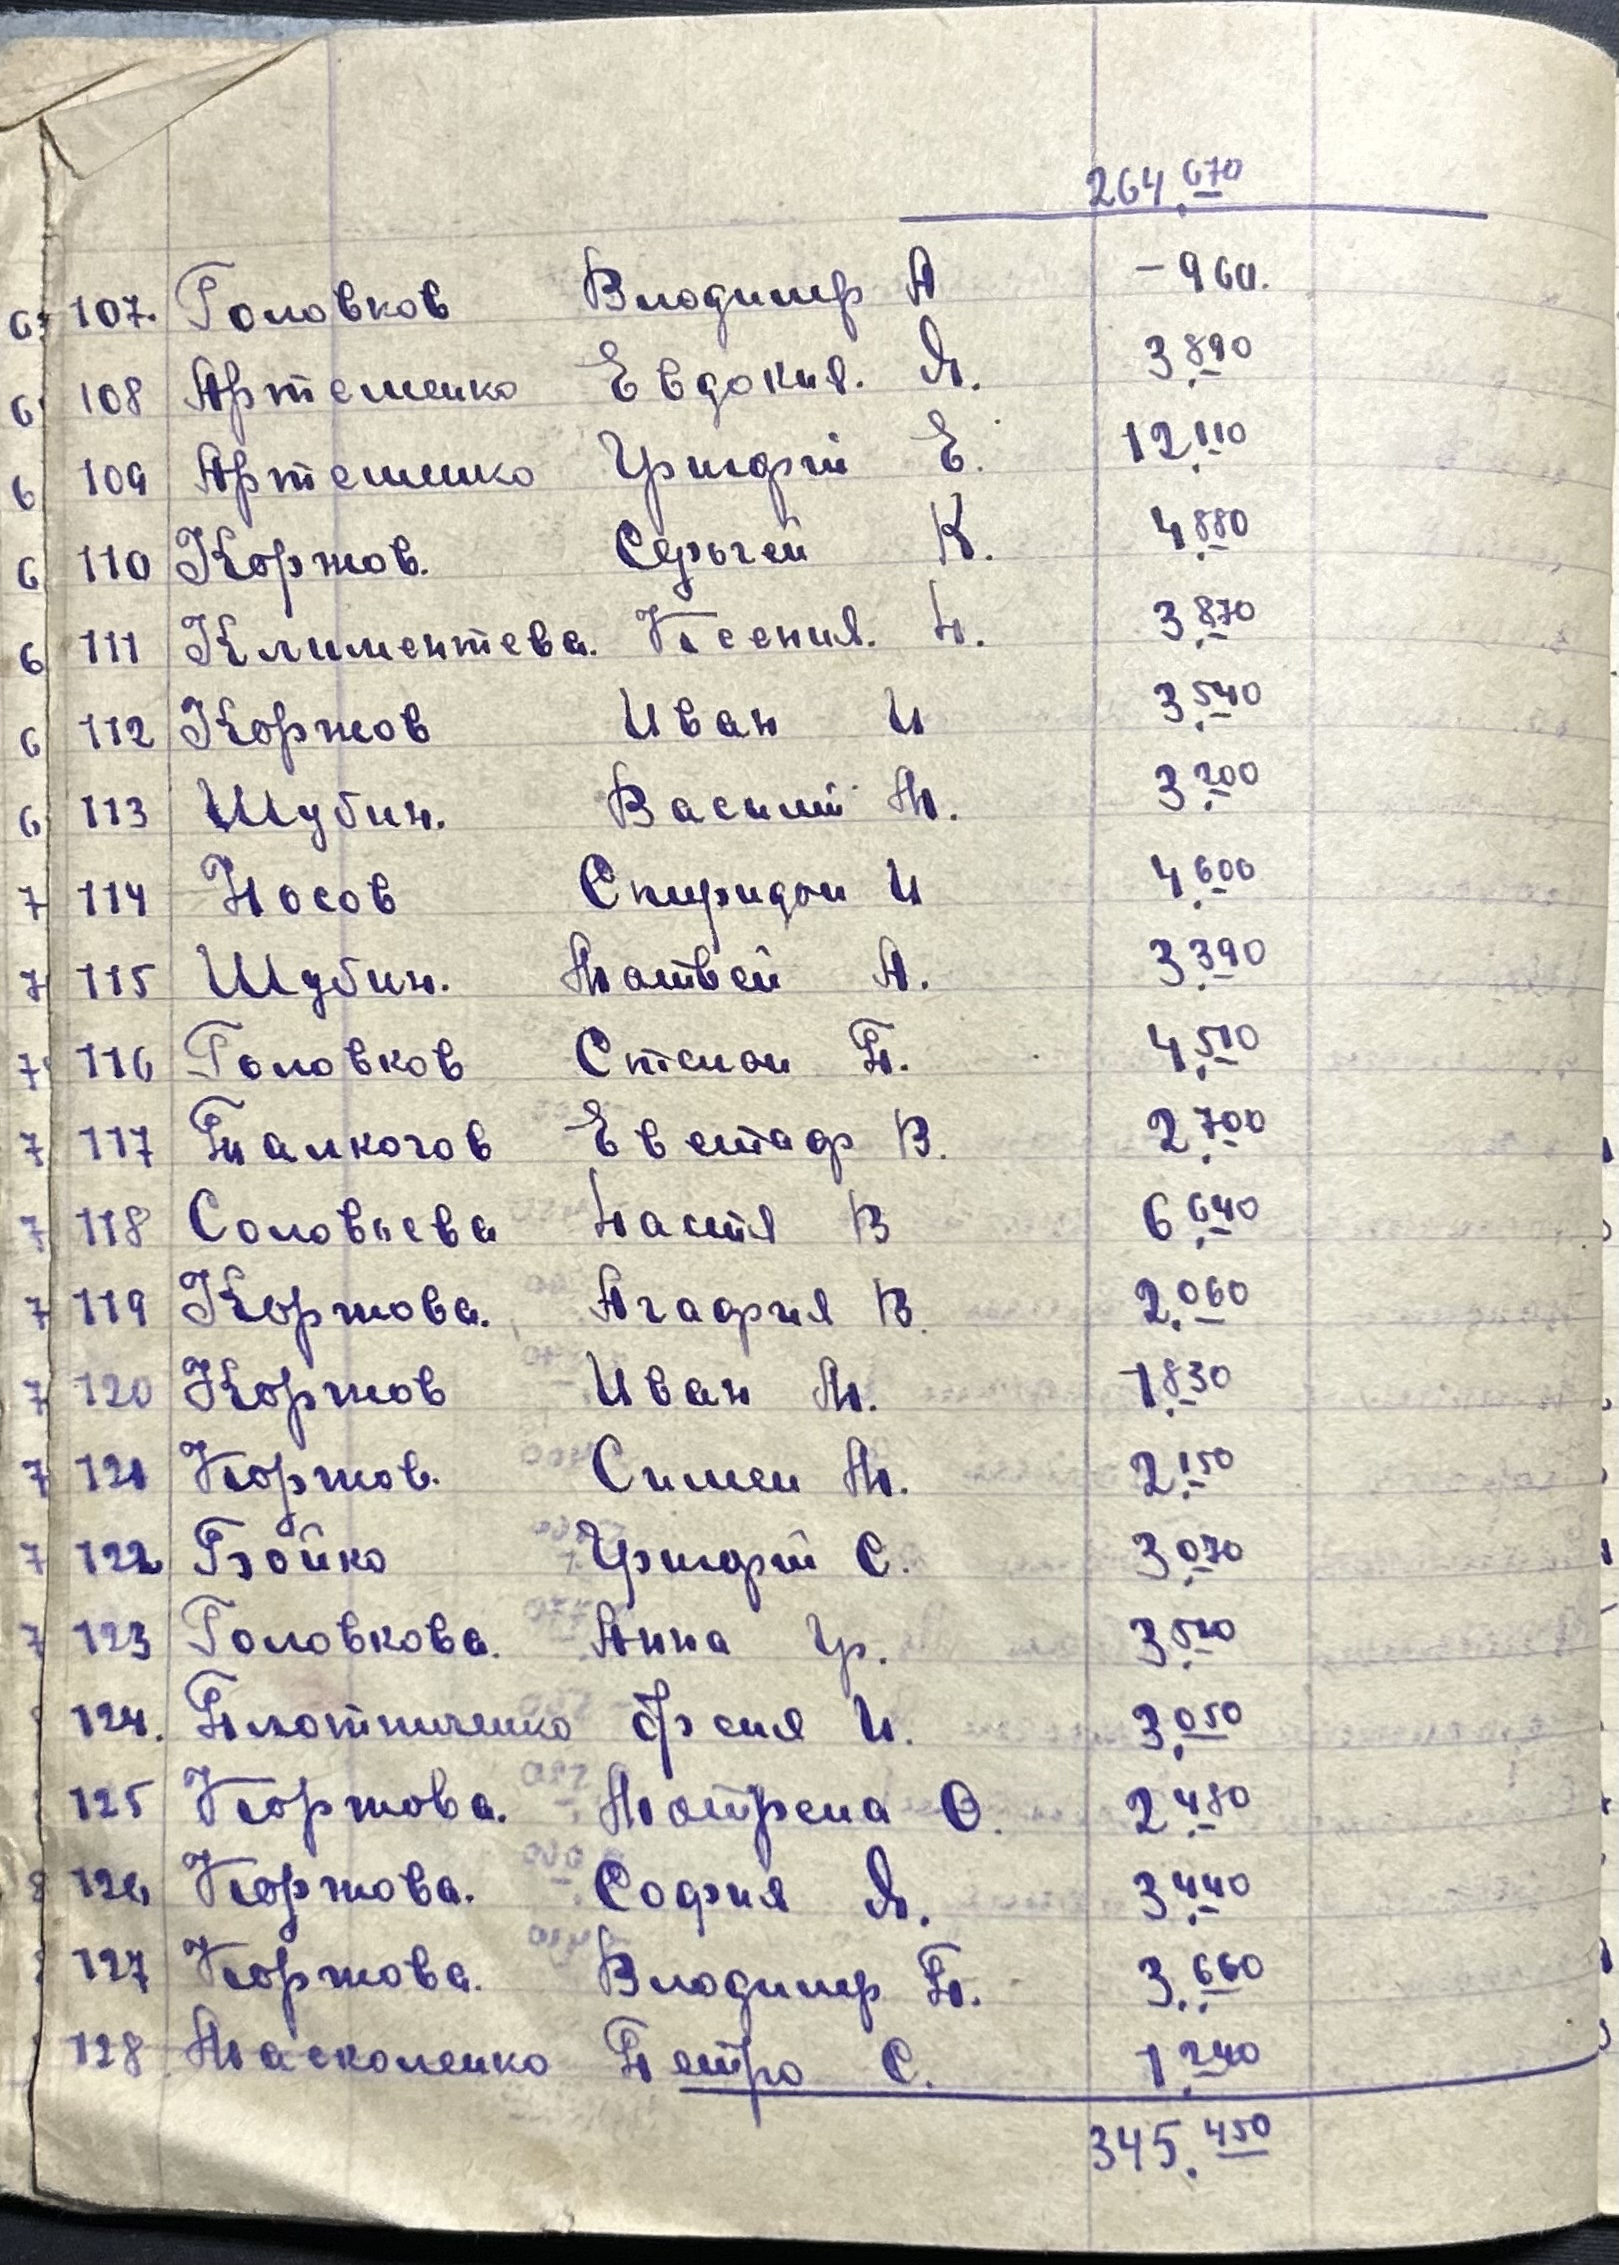 264.670
107. Головков Влодимир А -960.
108 Артеменко Евдокия. Я. 3.890
109 Артеменко Григорій Е. 12.110
110 Коржов. Сергей К. 4.880
111 Климентева. Ксения. Н. 3.870
112 Коржов Иван И 3.540
113 Шубин. Василий М. 3.200
114 Носов Спиридон И 4.600
115 Шубин. Матвей А. 3.390
116 Головков Степан П. 4.510
117 Палкогов Евстаф В. 2.700
118 Соловьева Настя В 6.640
119 Коржова. Агафия В. 2.060
120 Коржов Иван М. 1.830
121 Коржов. Симен М. 2.150
122 Бойко Григорій С. 3.070
123 Головкова. Анна Гр. 3.520
124. Плотниченко И. 3.050
125 Коржова. Мотрена О. 2.480
126 Коржова. София Я. 3.440
127 Коржова. Влодимир П. 3.660
128 Масколенко Петро С. 1.240
345.450